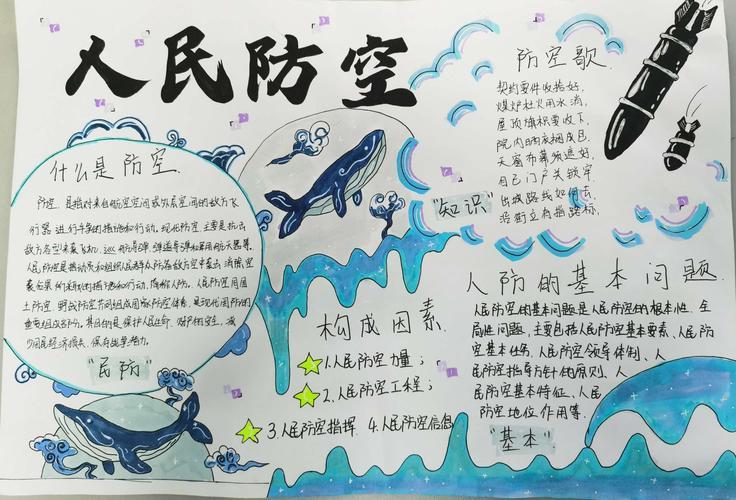 人民防空
什么是防空.
防空. 是指对来自航空空间或外层空间的敌方飞
行器进行斗争的措施和行动。现代防空主要是抗击
敌方各型来袭飞机、巡航导弹、弹道导弹和军用航天器等。
人民防空是指动员和组织人民群众防备敌方空中袭击、消除空
袭后果
人民防空同国
土防空、野战防空共同组成国家防空体系,是现代国防的
重要组成部分。其目的是保护人民生命、财产的安全,减
少国民经济损失、保存战争潜力。
"民防"
构成因素.
1.人民防空力量;
2.人民防空工程;
3.人民防空指挥 4.人民防空信息
防空歌.
契约要件收拾好,
煤炉灶火用水消,
屋顶旗帜要收下,
天窗布幕须遮好,
自己门户关锁牢
出城路线如何去,
沿街立有指路标,
"知识"
人防的基本问题.
人民防空的基本问题是人民防空的根本性、全
局性问题,主要包括人民防空基本要素、人民防
空基本任务、人民防空领导体制、人
民防空指导方针和原则、人
民防空基本特征、人民
防空地位作用等.
"基本"